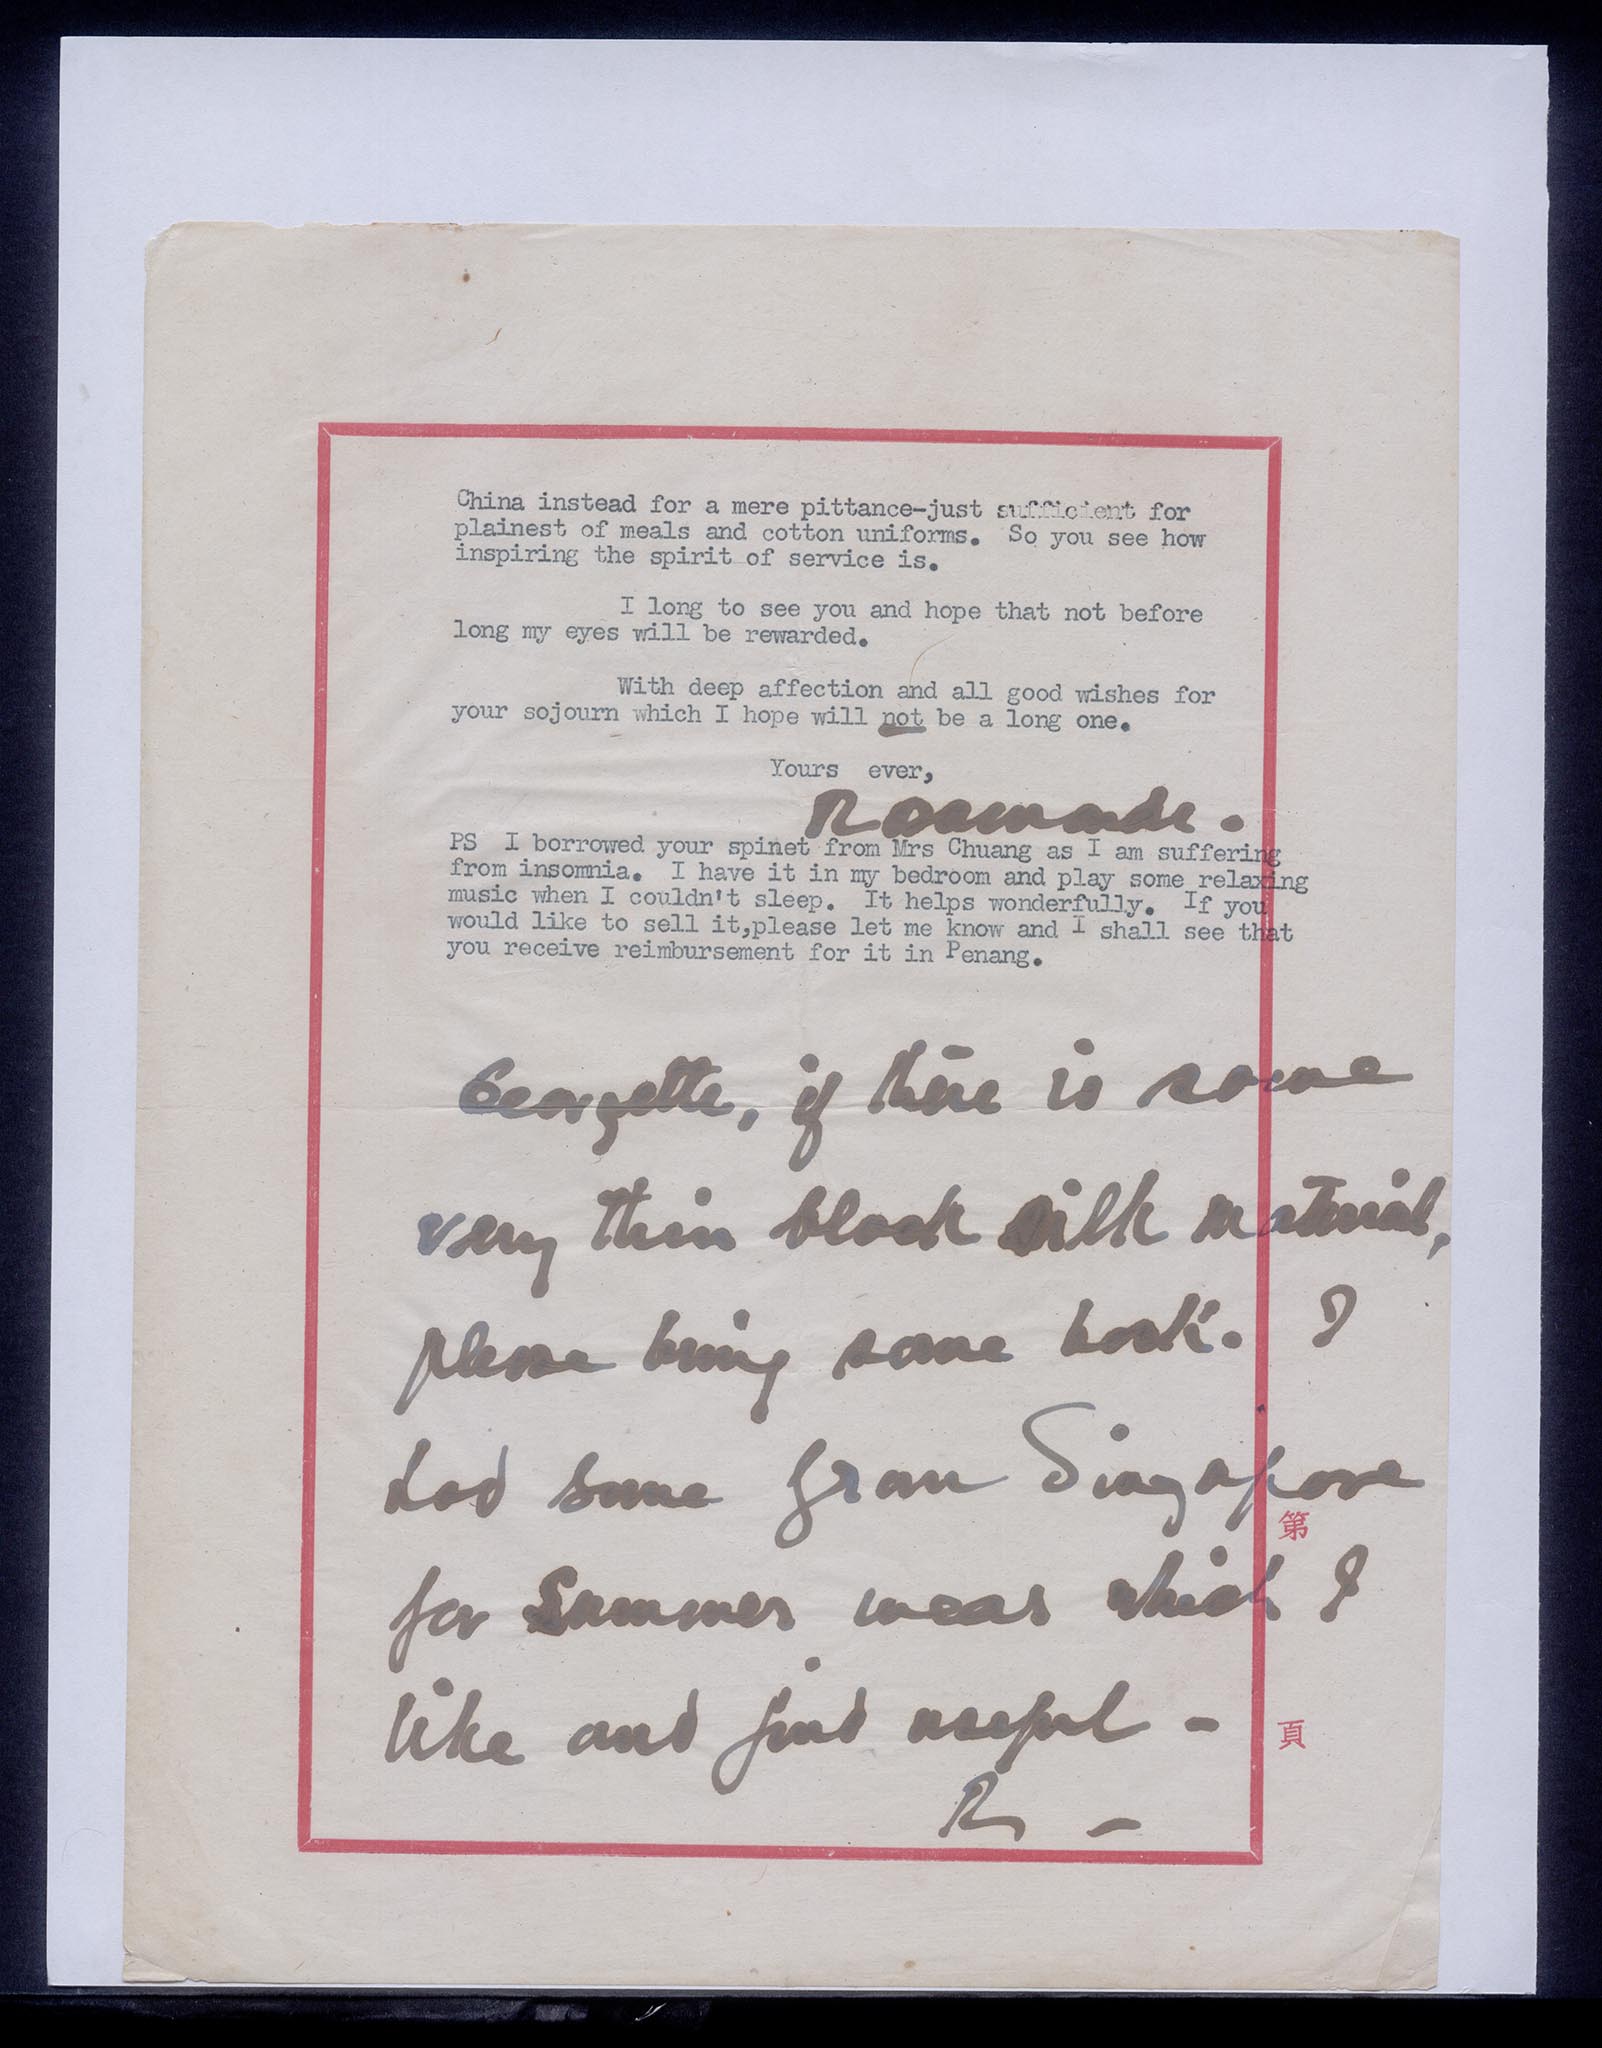 China instead for a mere pittance-just sufficient for
plainest of meals and cotton uniforms. So you see how
inspiring the spirit of service is.
I long to see you and hope that not before
long my eyes will be rewarded.
With deep affection and all good wishes for
your sojourn which I hope will not be a long one.
Yours ever,
Rosamonde.
PS I borrowed your spinet from Mrs Chuang as I am suffering
from insomnia. I have it in my bedroom and play some relaxing
music when I couldn't sleep. It helps wonderfully. If you
would like to sell it,please let me know and I shall see that
you receive reimbursement for it in Penang.
Georgette, if there is some
very thin black silk material,
please bring some back. I
had some from Singapore
for Summer wear which I
like and find useful -
R -
第
頁